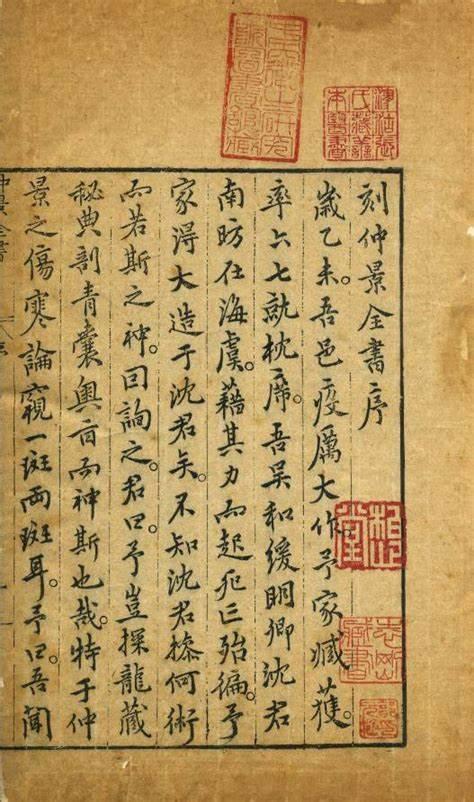 刻仲景全書序
歲乙未。吾邑疫厲大作。予家臧獲。
率六七就枕席。吾吳和緩明卿沈君
南昉在海虞。藉其力而起死亡殆徧。予
家得大造于沈君矣。不知沈君操何術
而若斯之神。因詢之。君曰予豈探龍藏
秘典剖青囊奧旨而神斯也哉。特于仲
景之傷寒論窺一斑兩斑耳。予曰吾聞
仲景全書